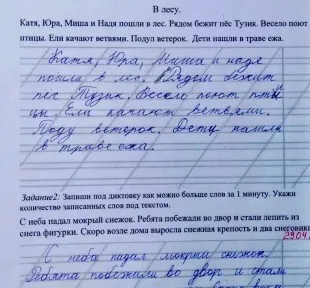 В лесу.
Катя, Юра, Миша и Надя пошли в лес. Рядом бежит пёс Тузик. Весело поют
птицы. Ели качают ветвями. Подул ветерок. Дети нашли в траве ежа.
Катя, Юра, Миша и надя
пошли в лес. Рядом бежит
пес Тузик. Весело поют пти
цы. Ели качают ветвями.
Поду ветерок. Дету нашли
в траве ежа.
Задание2: Запиши под диктовку как можно больше слов за 1 минуту. Укажи
количество записанных слов под текстом.
С неба падал мокрый снежок. Ребята побежали во двор и стали лепить из
снега фигурки. Скоро возле дома выросла снежная крепость и два снеговика
29.04
С неба падал мокрий снежок.
Ребята побежали во двор и стали